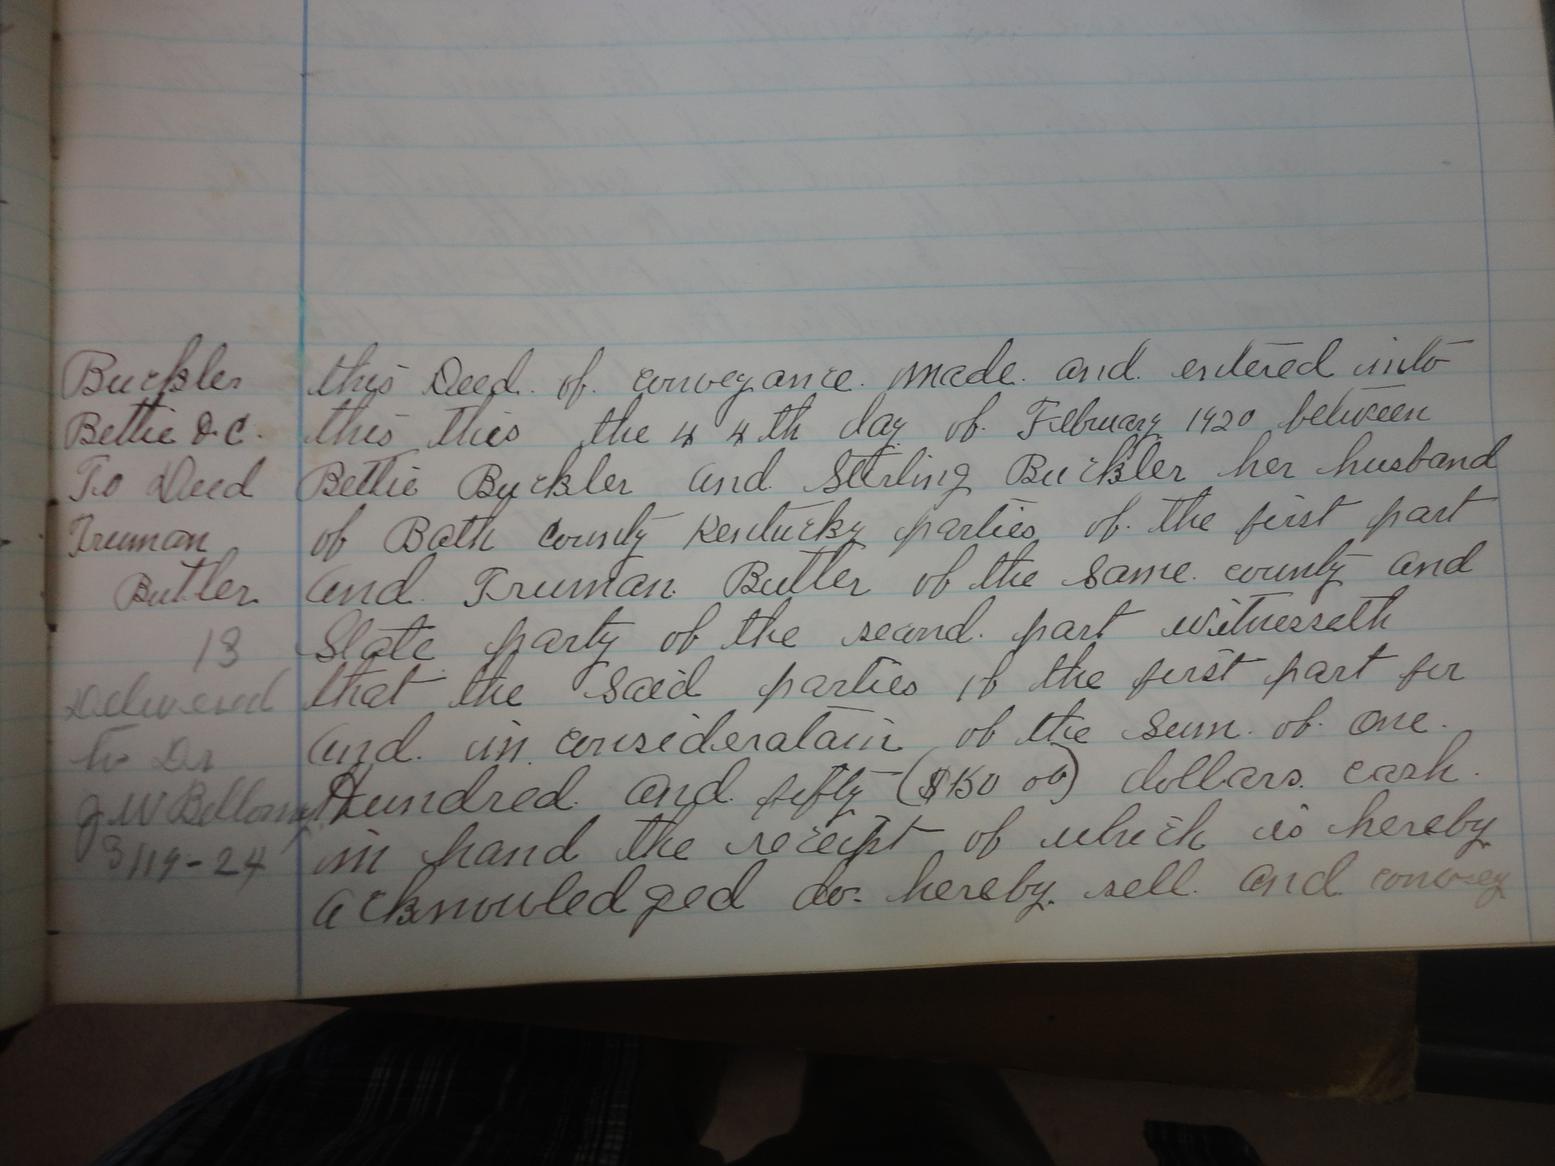 Buckler
Bettie &.C.
To Deed
Truman
Butler
13
Delivered
to Dr
J W Bellamy
3/19-24
this Deed. of. conveyance. made. and. entered into
this this the 4 4th day of. February 1920 between
Bettie Buckler and Sterling Buckler her husband
of Bath county Kentucky parties of. the first part
and. Truman. Butler of the same. county and
State party of the second. part witnesseth
that the said parties of the first part for
and. in. consideratain of the sum. of. one.
Hundred. and fifty ($150 00) dollars. cash.
in hand the receipt of which is hereby
acknowledged do. hereby. sell. and convey